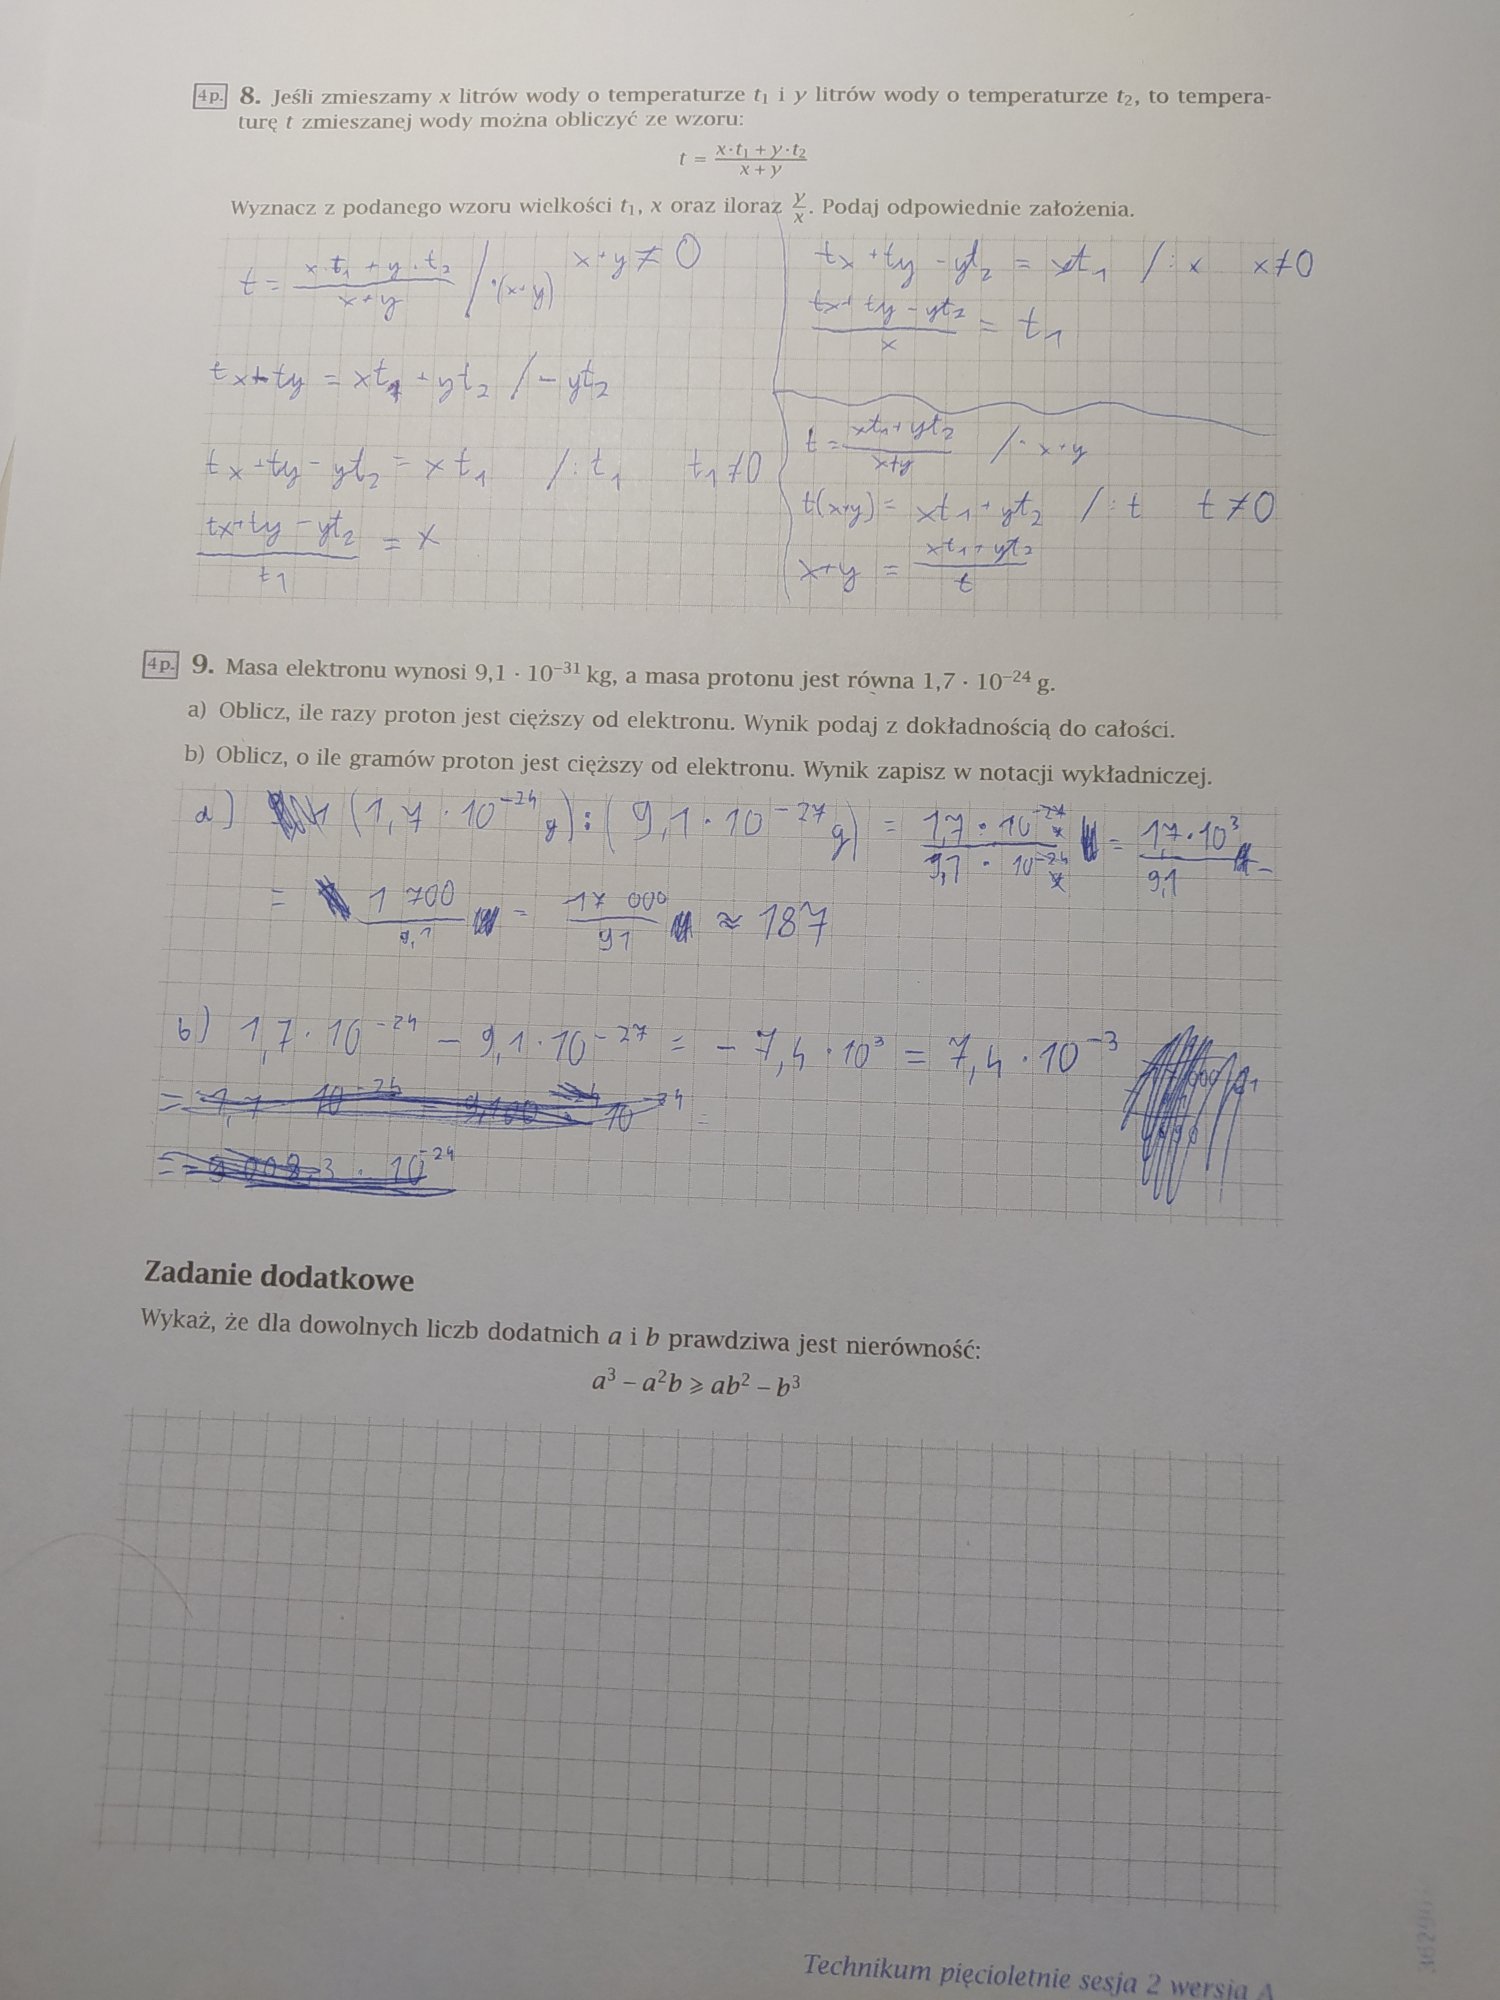 4p. 8. Jeśli zmieszamy x litrów wody o temperaturze t₁ i y litrów wody o temperaturze t₂, to tempera-
turę t zmieszanej wody można obliczyć ze wzoru:
t = (x·t₁ + y·t₂)/(x + y)
Wyznacz z podanego wzoru wielkości t₁, x oraz iloraz y/x. Podaj odpowiednie założenia.
t = (x·t₁ + y·t₂)/(x+y) /·(x+y) x+y ≠ 0
tx+ty = xt₁ + yt₂ /- yt₂
tx+ty - yt₂ = xt₁ /: t₁ t₁≠0
(tx+ty - yt₂)/t₁ = x
tx+ty - yt₂ = xt₁ /: x x≠0
(tx+ty - yt₂)/x = t₁
t = (xt₁+yt₂)/(x+y) /· x+y
t(x+y) = xt₁+yt₂ /: t t≠0
x+y = (xt₁+yt₂)/t
4p. 9. Masa elektronu wynosi 9,1 · 10⁻³¹ kg, a masa protonu jest równa 1,7 · 10⁻²⁴ g.
a) Oblicz, ile razy proton jest cięższy od elektronu. Wynik podaj z dokładnością do całości.
b) Oblicz, o ile gramów proton jest cięższy od elektronu. Wynik zapisz w notacji wykładniczej.
a) (1,7 · 10⁻²⁴ g) : (9,1 · 10⁻²⁷ g) = (1,7 · 10⁻²⁷)/(9,1 · 10⁻²⁴) = (1,7·10³)/9,1 =
= 1 700/9,1 = 17 000/91 ≈ 187
b) 1,7 · 10⁻²⁴ - 9,1 · 10⁻²⁷ = - 7,4 · 10³ = 7,4 · 10⁻³
Zadanie dodatkowe
Wykaż, że dla dowolnych liczb dodatnich a i b prawdziwa jest nierówność:
a³ – a²b ⩾ ab² – b³
Technikum pięcioletnie sesja 2 wersja A